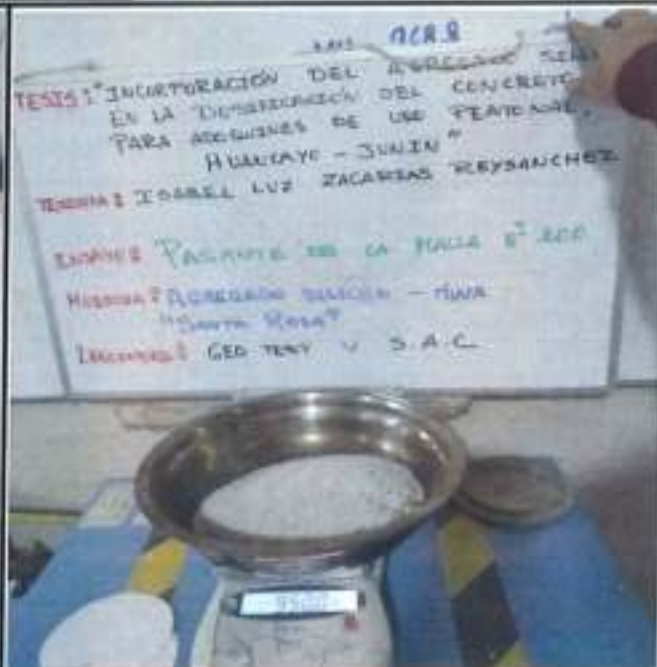 TESIS: "INCORPORACIÓN DEL AGREGADO
EN LA DOSIFICACIÓN DEL CONCRETO
PARA ADOQUINES DE USO PEATONAL,
HUANCAYO - JUNIN"
TESISTA: ISABEL LUZ ZACARIAS REYSANCHEZ
ENSAYO: PASANTE DE LA MALLA N° 200
MUESTRA: AGREGADO SILICEO - MINA
"SANTA ROSA"
GEO TEST V S.A.C